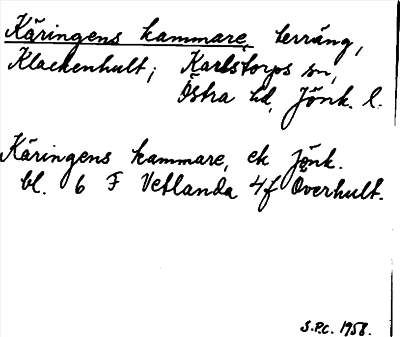 Käringens kammare, terräng,
Klackenhult; Karlstorps sn,
Östra hd, Jönk. l.
Käringens kammare, ek Jönk.
bl. 6 F Vetlanda 4f Överhult.
S.P.C. 1958.